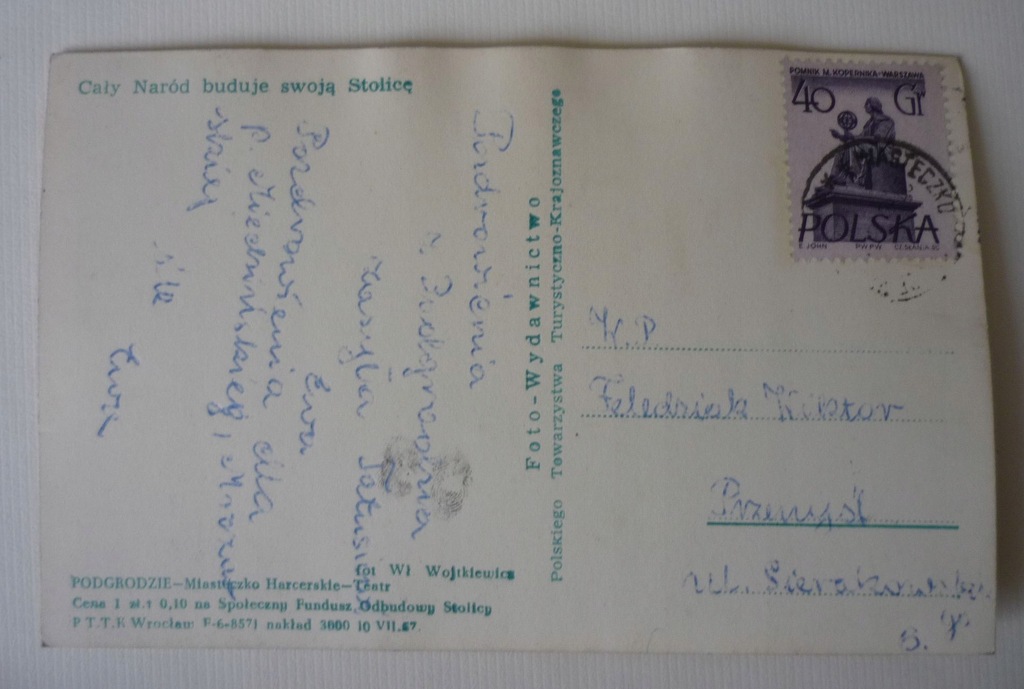 Cały Naród buduje swoją Stolicę
Pozdrowienia
z Podgrodzia
zasyła Tatusiowi
Ewa
Pozdrowienia dla
p.
śle
Ewa
Foto-Wydawnictwo
Polskiego Towarzystwa Turystyczno-Krajoznawczego
PODGRODZIE—Miasteczko Harcerskie—Teatr
fot Wł Wojtkiewicz
Cena 1 zł.+ 0,10 na Społeczny Fundusz Odbudowy Stolicy
P T.T.K Wrocław F-6-8571 nakład 3000 10 VII.57.
POMNIK M. KOPERNIKA-WARSZAWA
40 Gr
POLSKA
E. JOHN PWPW
W.P
Wiktor
Przemyśl
ul.